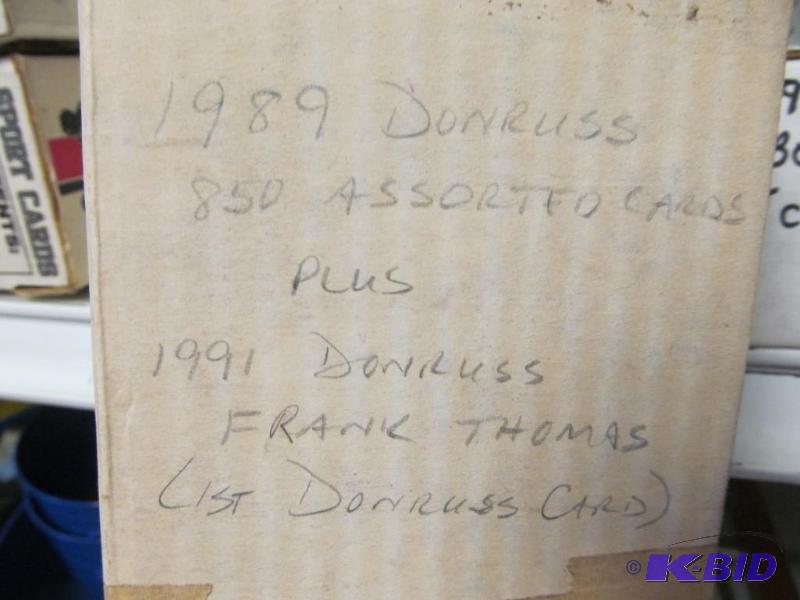 1989 DONRUSS
850 ASSORTED CARDS
PLUS
1991 DONRUSS
FRANK THOMAS
(1ST DONRUSS CARD)
SPORT CARDS
© K-BID